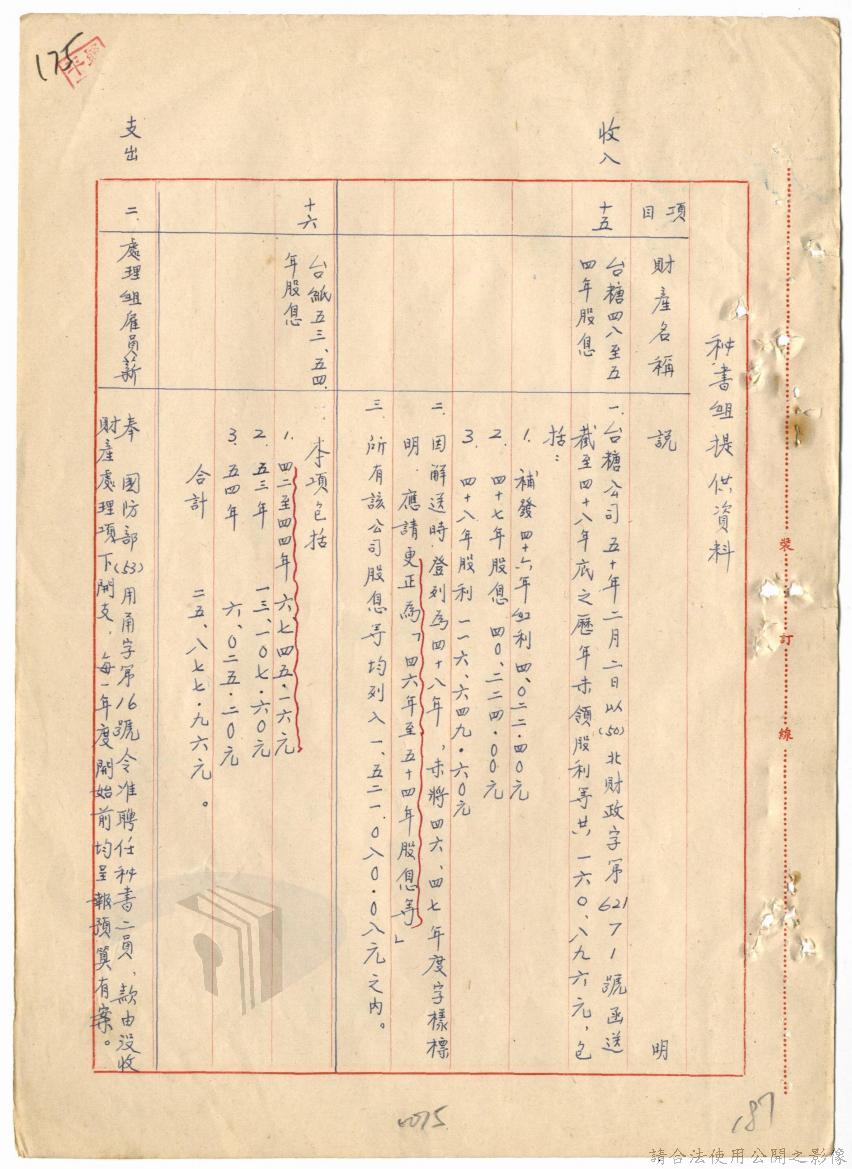 175
秘書組提供資料
項目
財產名稱
說明
收入
十五
台糖四八至五
四年股息
一、台糖公司五十年二月二日以(50)北財政字第6271號函送
截至四十八年底之歷年未領股利等共一六〇、八九六元,包
括:
1. 補發四十六年紅利四、〇二二・四〇元
2. 四十七年股息 四〇、二二四・〇〇元
3. 四十八年股利 一一六、六四九・六〇元
二、因解送時登列為四十八年,未將四六、四七年度字樣標
明,應請更正為「四六年至五十四年股息等」
三、所有該公司股息等均列入一、五二一、〇八〇・〇八元之內。
十六
台紙五三、五四
年股息
一、本項包括
1. 四二至四四年 六七四五・一六元
2. 五三年 一三、一〇七・六〇元
3. 五四年 六、〇二五・二〇元
合計 二五、八七七・九六元。
支出
二
處理組雇員薪
奉 國防部(53)用甬字第16號令准聘任秘書二員,款由沒收
財產處理項下開支,每一年度開始前均呈報預算有案。
裝訂線
187
請合法使用公開之影像